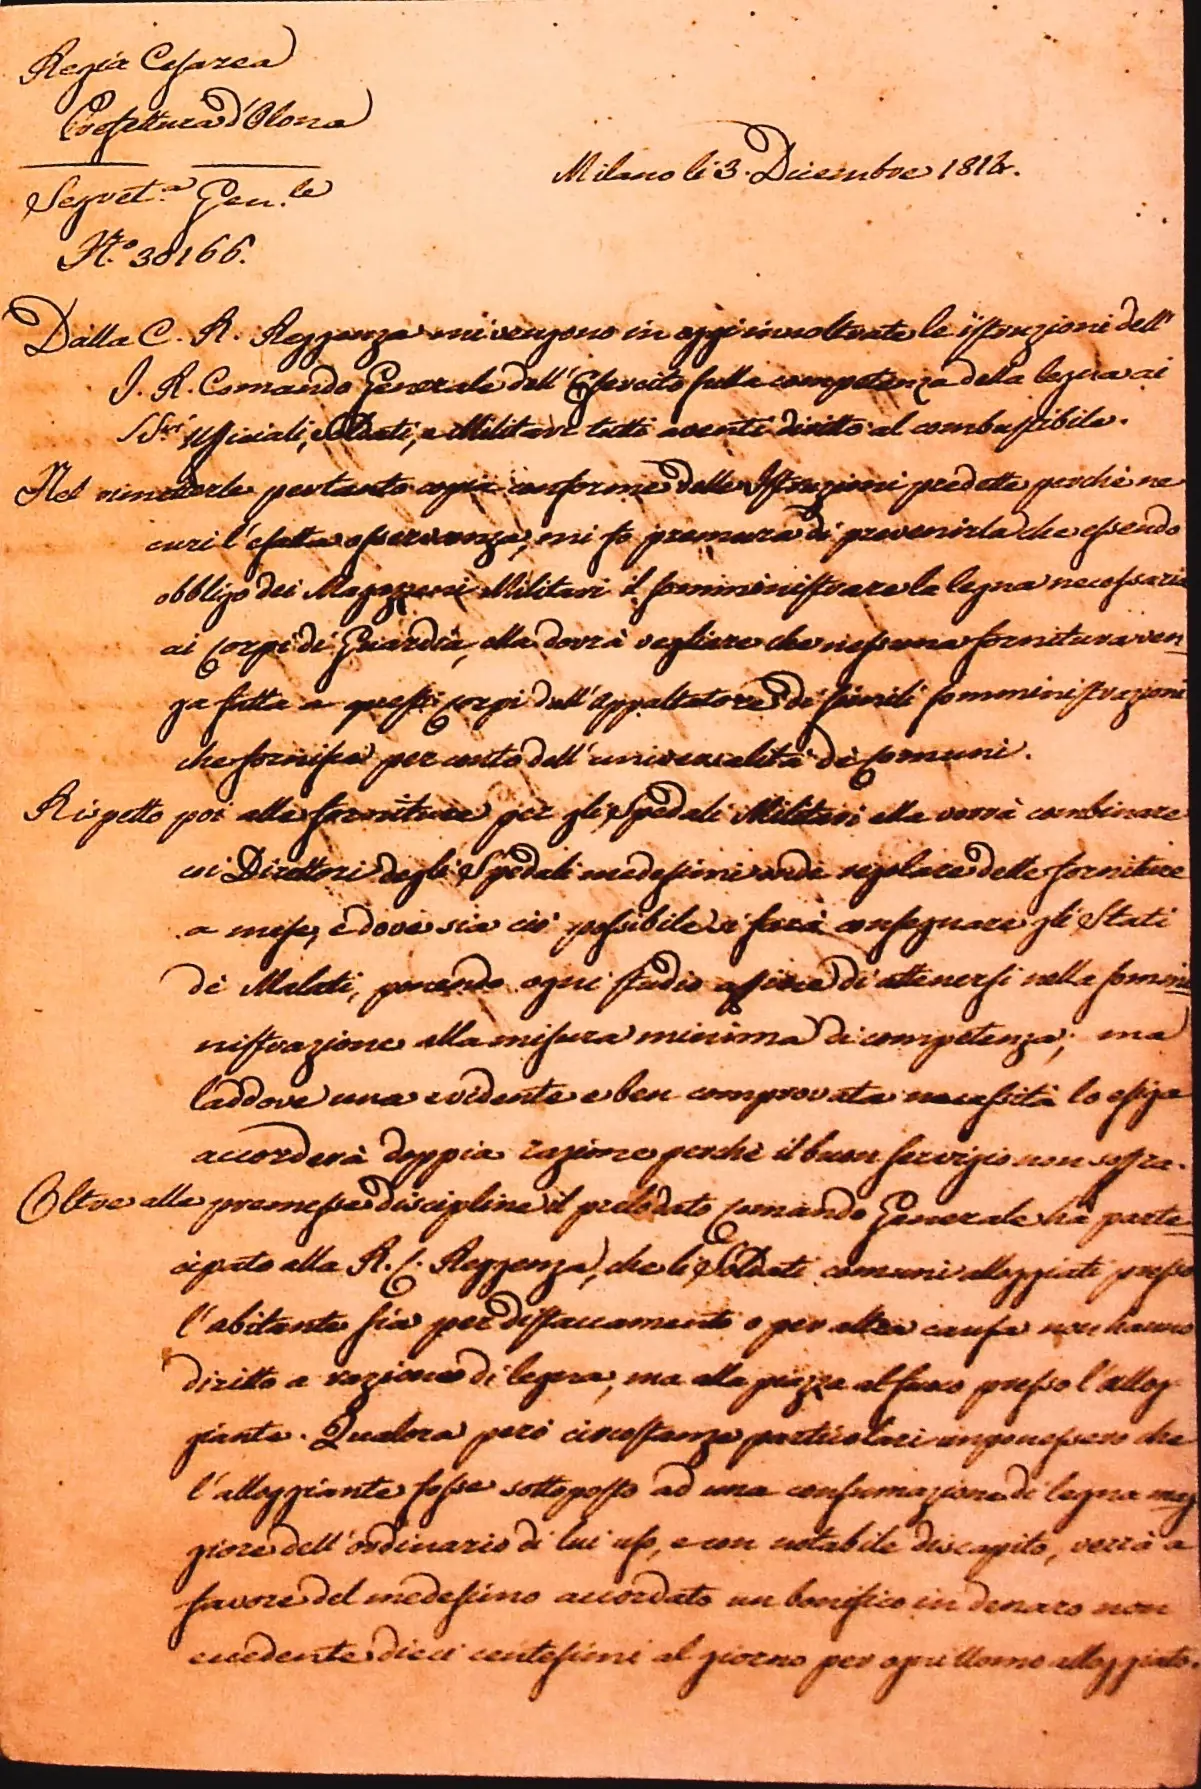 Regia Cesarea
Prefettura d'Olona
Segret.a Gen.le
N.o 38166.
Milano li 3. Dicembre 1814.
Dalla C. R. Reggenza mi vengono in oggi innoltrate le istruzioni dell'
I. R. Comando Generale dell'Esercito sulla competenza della legna ai
SSri Ufficiali, Soldati, e Militari tutti aventi diritto al combustibile.
Nel rimetterle pertanto copia conforme delle Istruzioni predette perchè ne
curi l'esatta osservanza, mi fo premura di prevenirla che essendo
obbligo dei Magazzeni Militari il somministrare la legna necessaria
ai Corpi di Guardia, ella dovrà vegliare che nessuna fornitura ven
ga fatta a questi Corpi dall'Appaltatore di simili somministrazioni
che fornisce per conto dell'universalità de Comuni.
Rispetto poi alle forniture per gli Spedali Militari ella vorrà combinare
coi Direttori degli Spedali medesimi onde regolare delle forniture
a mese, e dove sia ciò possibile si farà consegnare gli Stati
de Malati, ponendo ogni studio affine di attenersi nella sommi
nistrazione alla misura minima di competenza; ma
laddove una evidente e ben comprovata necessità lo esiga
accorderà doppia razione perchè il buon servigio non soffra.
Oltre alle premesse discipline il prelodato Comando Generale ha parte
cipato alla R. C. Reggenza, che li Soldati comuni alloggiati presso
l'abitante sia per distaccamento o per altra causa non hanno
diritto a razione di legna, ma alla piazza al fuoco presso l'allog
giante. Qualora però circostanze particolari imponessero che
l'alloggiante fosse sottoposto ad una consumazione di legna mag
giore dell'ordinario di lui uso, e con notabile discapito, verrà a
favore del medesimo accordato un bonifico in denaro non
eccedente dieci centesimi al giorno per ogni Uomo alloggiato.